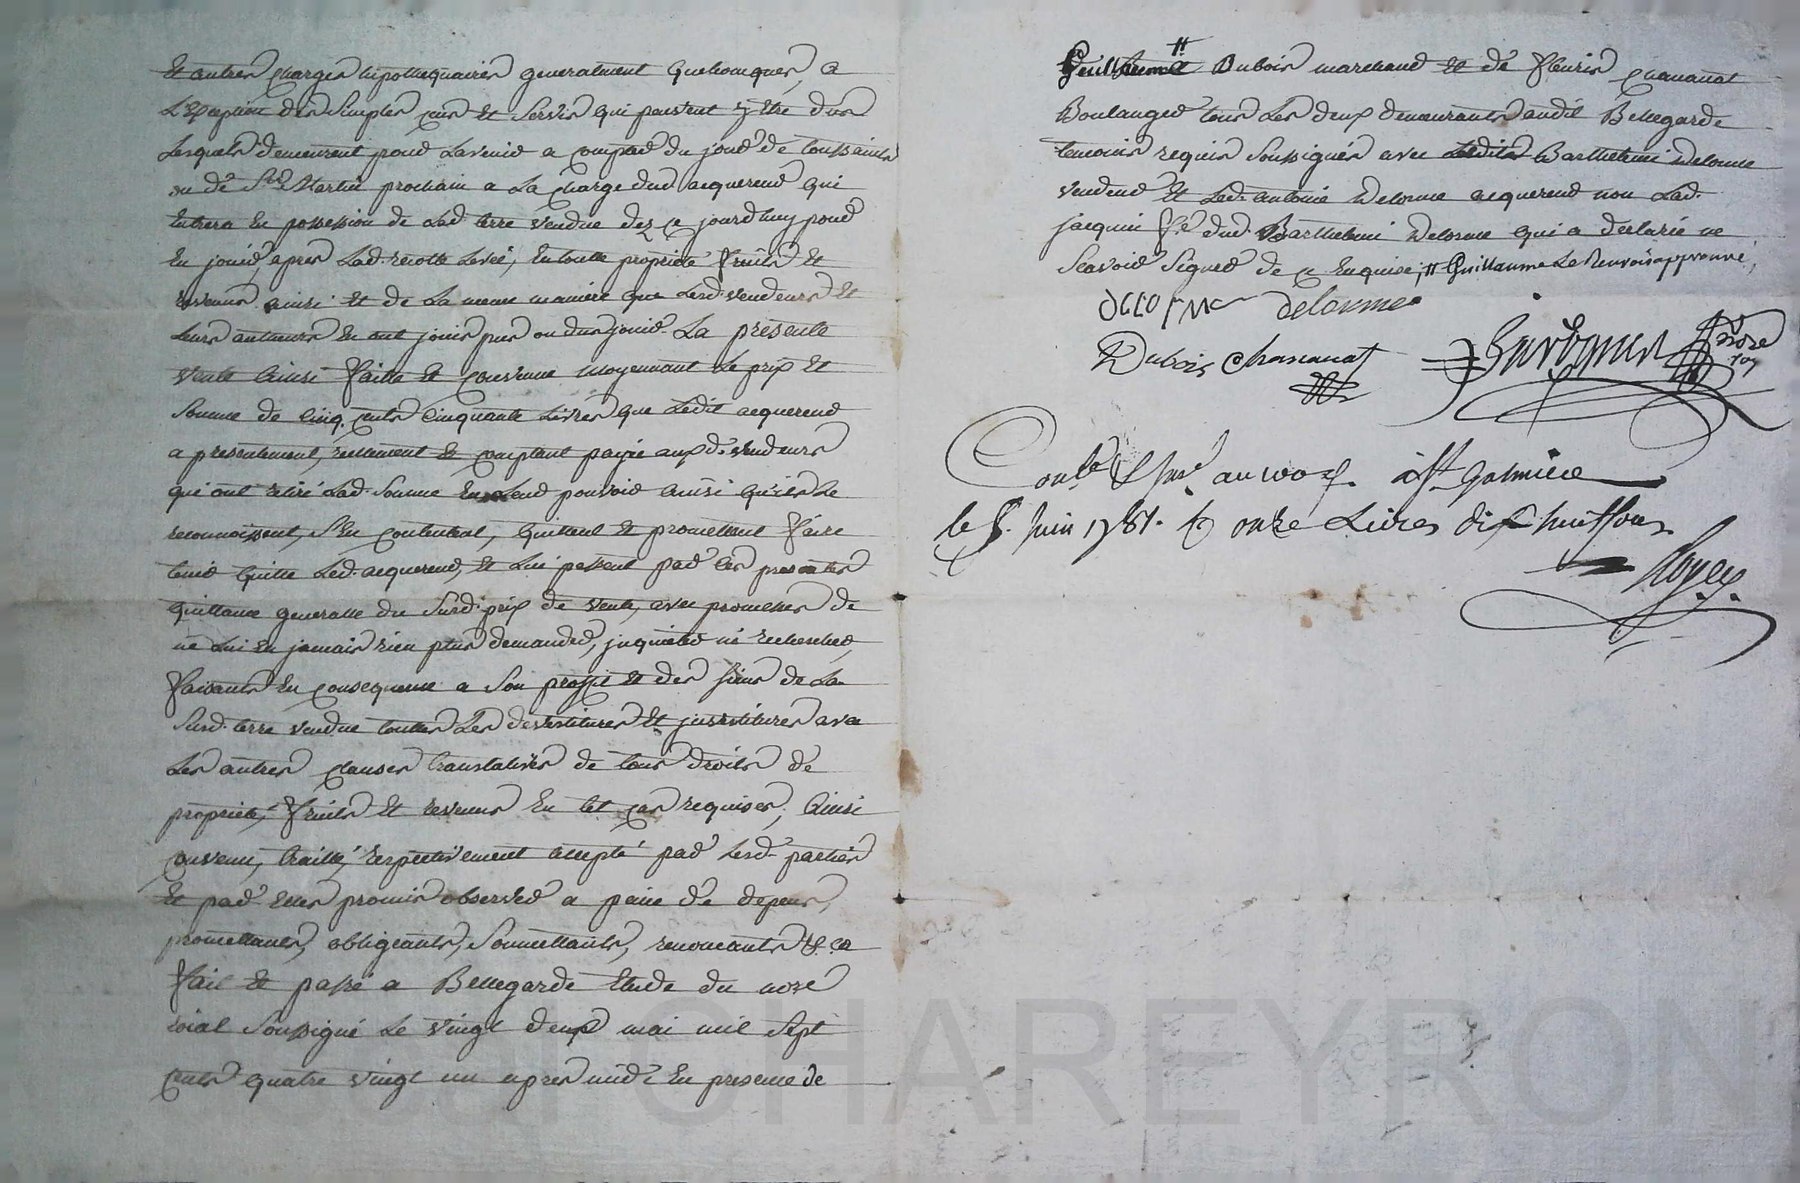 Et autres charges hipothequaires generalment quelconques, a
L'exception des simples cens et servis qui peuvent y etre dus
Lesquels demeurent pour Lavenir a compter du jour de toussaints
ou de St Martin prochain a La charge dud. acquereur qui
Entrera En possession de Lad. terre vendue dez ce jourd'huy pour
En jouir, apres Lad. recolte Levée, En toutte propriété fruits et
revenus ainsi et de La meme maniere que Lesd. vendeurs et
Leurs autheurs En ont joui pus ou dus jouir. La presente
vente ainsi faitte et convenue moyennant Le prix et
Somme de Cinq cents Cinquante Livres que Ledit acquereur
a presentement, reellement et comptant payée auxd. vendeurs
qui ont retiré Lad. Somme En Leur pouvoir ainsi qu'ils Le
reconnoissent, S'En contentent, quittent et promettent faire
tenir quitte Led. acquereur, et Lui passent par ces presentes
quittance generalle du Surd. prix de vente, avec promesses de
ne Lui En jamais rien plus demander, inquieter ni rechercher,
faisants En consequence a Son proffit et des siens de La
Surd. terre vendue touttes Les devestitures et investitures avec
Les autres clauses translatives de tous droits de
propriété, fruits et revenus En tel cas requises; Ainsi
convenu, traitté, respectivement accepté par Lesd. parties
et par Elles promis observer a peine de depens,
promettants, obligeants, Soumettants, renonceants &. ca
fait et passé a Bellegarde Etude du nore
roial Soussigné Le vingt deux mai mil Sept
cents quatre vingt un apres midi En presence de
Guillaume # Dubois marchand et de fleuris chananat
Boulanger tous Les deux demeurants audit Bellegarde
temoins requis Soussignés avec Ledit Barthelemi Delorme
vendeur et Led. antoine Delorme acquereur non Lad.
jacquin fe. dud. Barthelemi Delorme qui a declaré ne
Scavoir Signer de ce Enquise, # Guillaume Le Renvoi approuvé,
delorme delorme
Dubois Chananat
nore roy
Contlé & insé au 100 d. à St Galmier
le 5. Juin 1781. R onze Livres dix huit sous
CHAREYRON